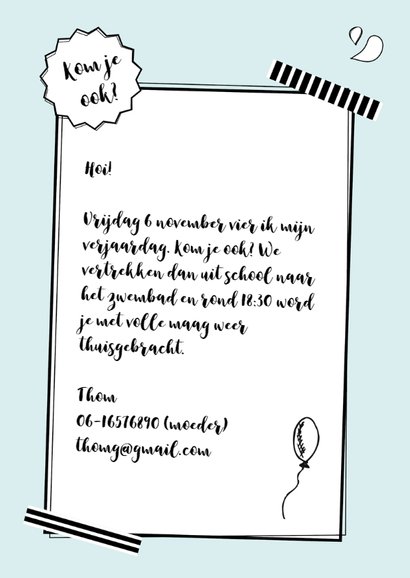 Kom je
ook?
Hoi!
Vrijdag 6 november vier ik mijn
verjaardag. Kom je ook? We
vertrekken dan uit school naar
het zwembad en rond 18:30 word
je met volle maag weer
thuisgebracht.
Thom
06-16576890 (moeder)
thomg@gmail.com